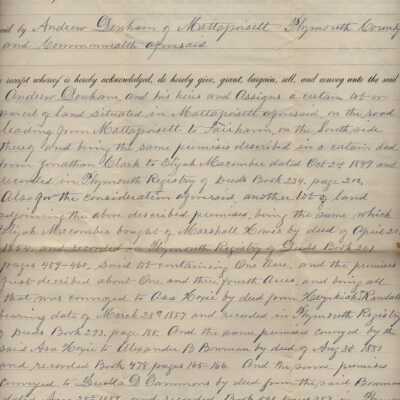 aid by Andrew Denham of Mattapoisett Plymouth County
and Commonwealth aforesaid
e receipt whereof is hereby acknowledged, do hereby give, grant, bargain, sell, and convey unto the said
Andrew Denham, and his heirs and Assigns a certain lot or
parcel of land situated in Mattapoisett aforesaid on the road
leading from Mattapoisett to Fairhaven, on the South side
thereof and being the same premises described in a certain deed
from Jonathan Clark to Elijah Macomber dated Oct 24 1849 and
recorded in Plymouth Registry of Deeds Book 234, page 202,
Also for the consideration aforesaid, another lot of land
adjoining the above described premises, being the same, which
Elijah Macomber bought of Marshall Howie by deed of April 21,
and recorded in Plymouth Registry of Deeds Book 261
pages 459-460, Said lot containing One Acre, and the premises
first described about One and three fourth Acres, and being all
that was conveyed to Asa Hoxie by deed from Kendall
bearing date of March 28th 1857 and recorded in Plymouth Registry
of Deeds Book 293, page 188. And the same premises conveyed by the
said Asa Hoxie to Alexander B Bowman by deed of Aug 30 1881
and recorded Book 478 pages 165-166. And the same premises
conveyed to D Cammons by deed from the said Bowman